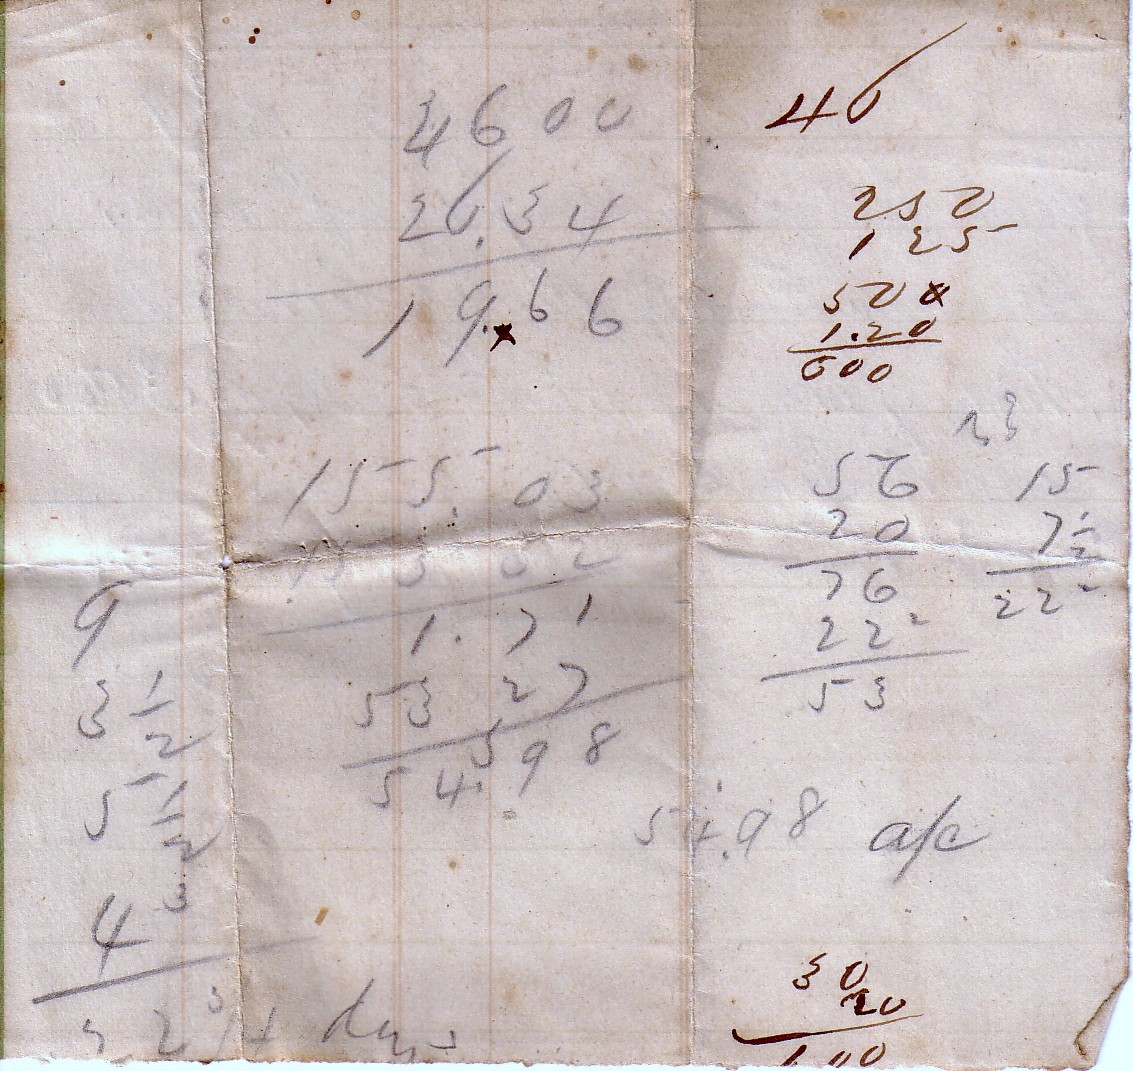 46 00
20.34
19.66
155.03
1.71
53 27
54.98
9
3 1/2
5 1/2
4 3
22 3/4 days
40
250
125
500
1.20
600
23
56
20
76
22 2
53
15
7 1/2
22 2
54.98 a/c
30
20
600